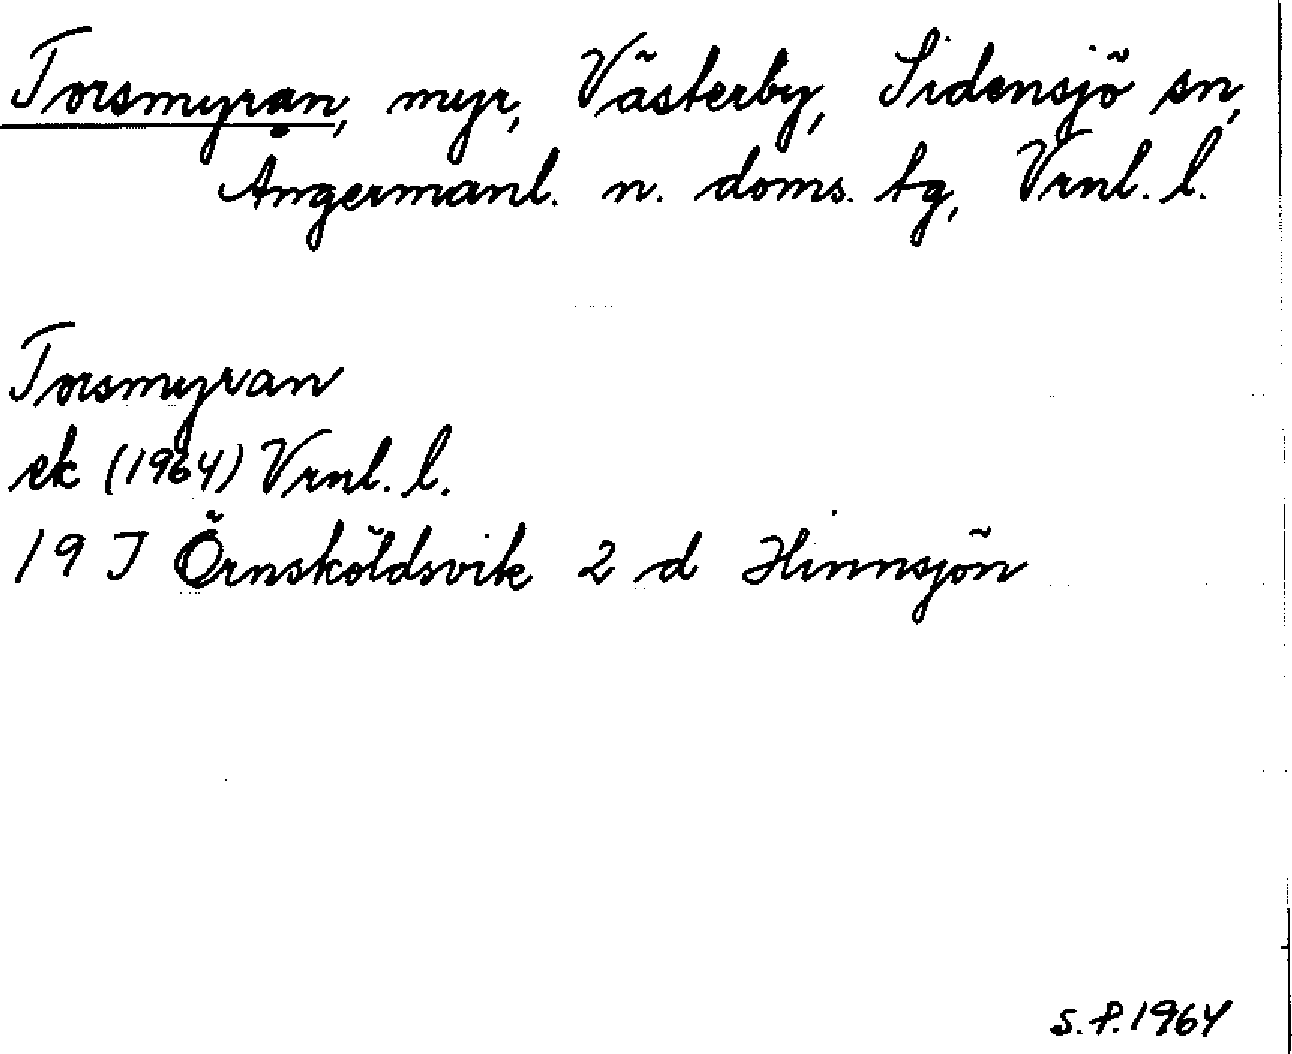 Torsmyran, myr, Västerby, Sidensjö sn,
Ångermanl. n. doms. tg, Vrnl. l.
Torsmyran
ek (1964) Vrnl. l.
19 J Örnsköldsvik 2 d Hinnsjön
S. P. 1964